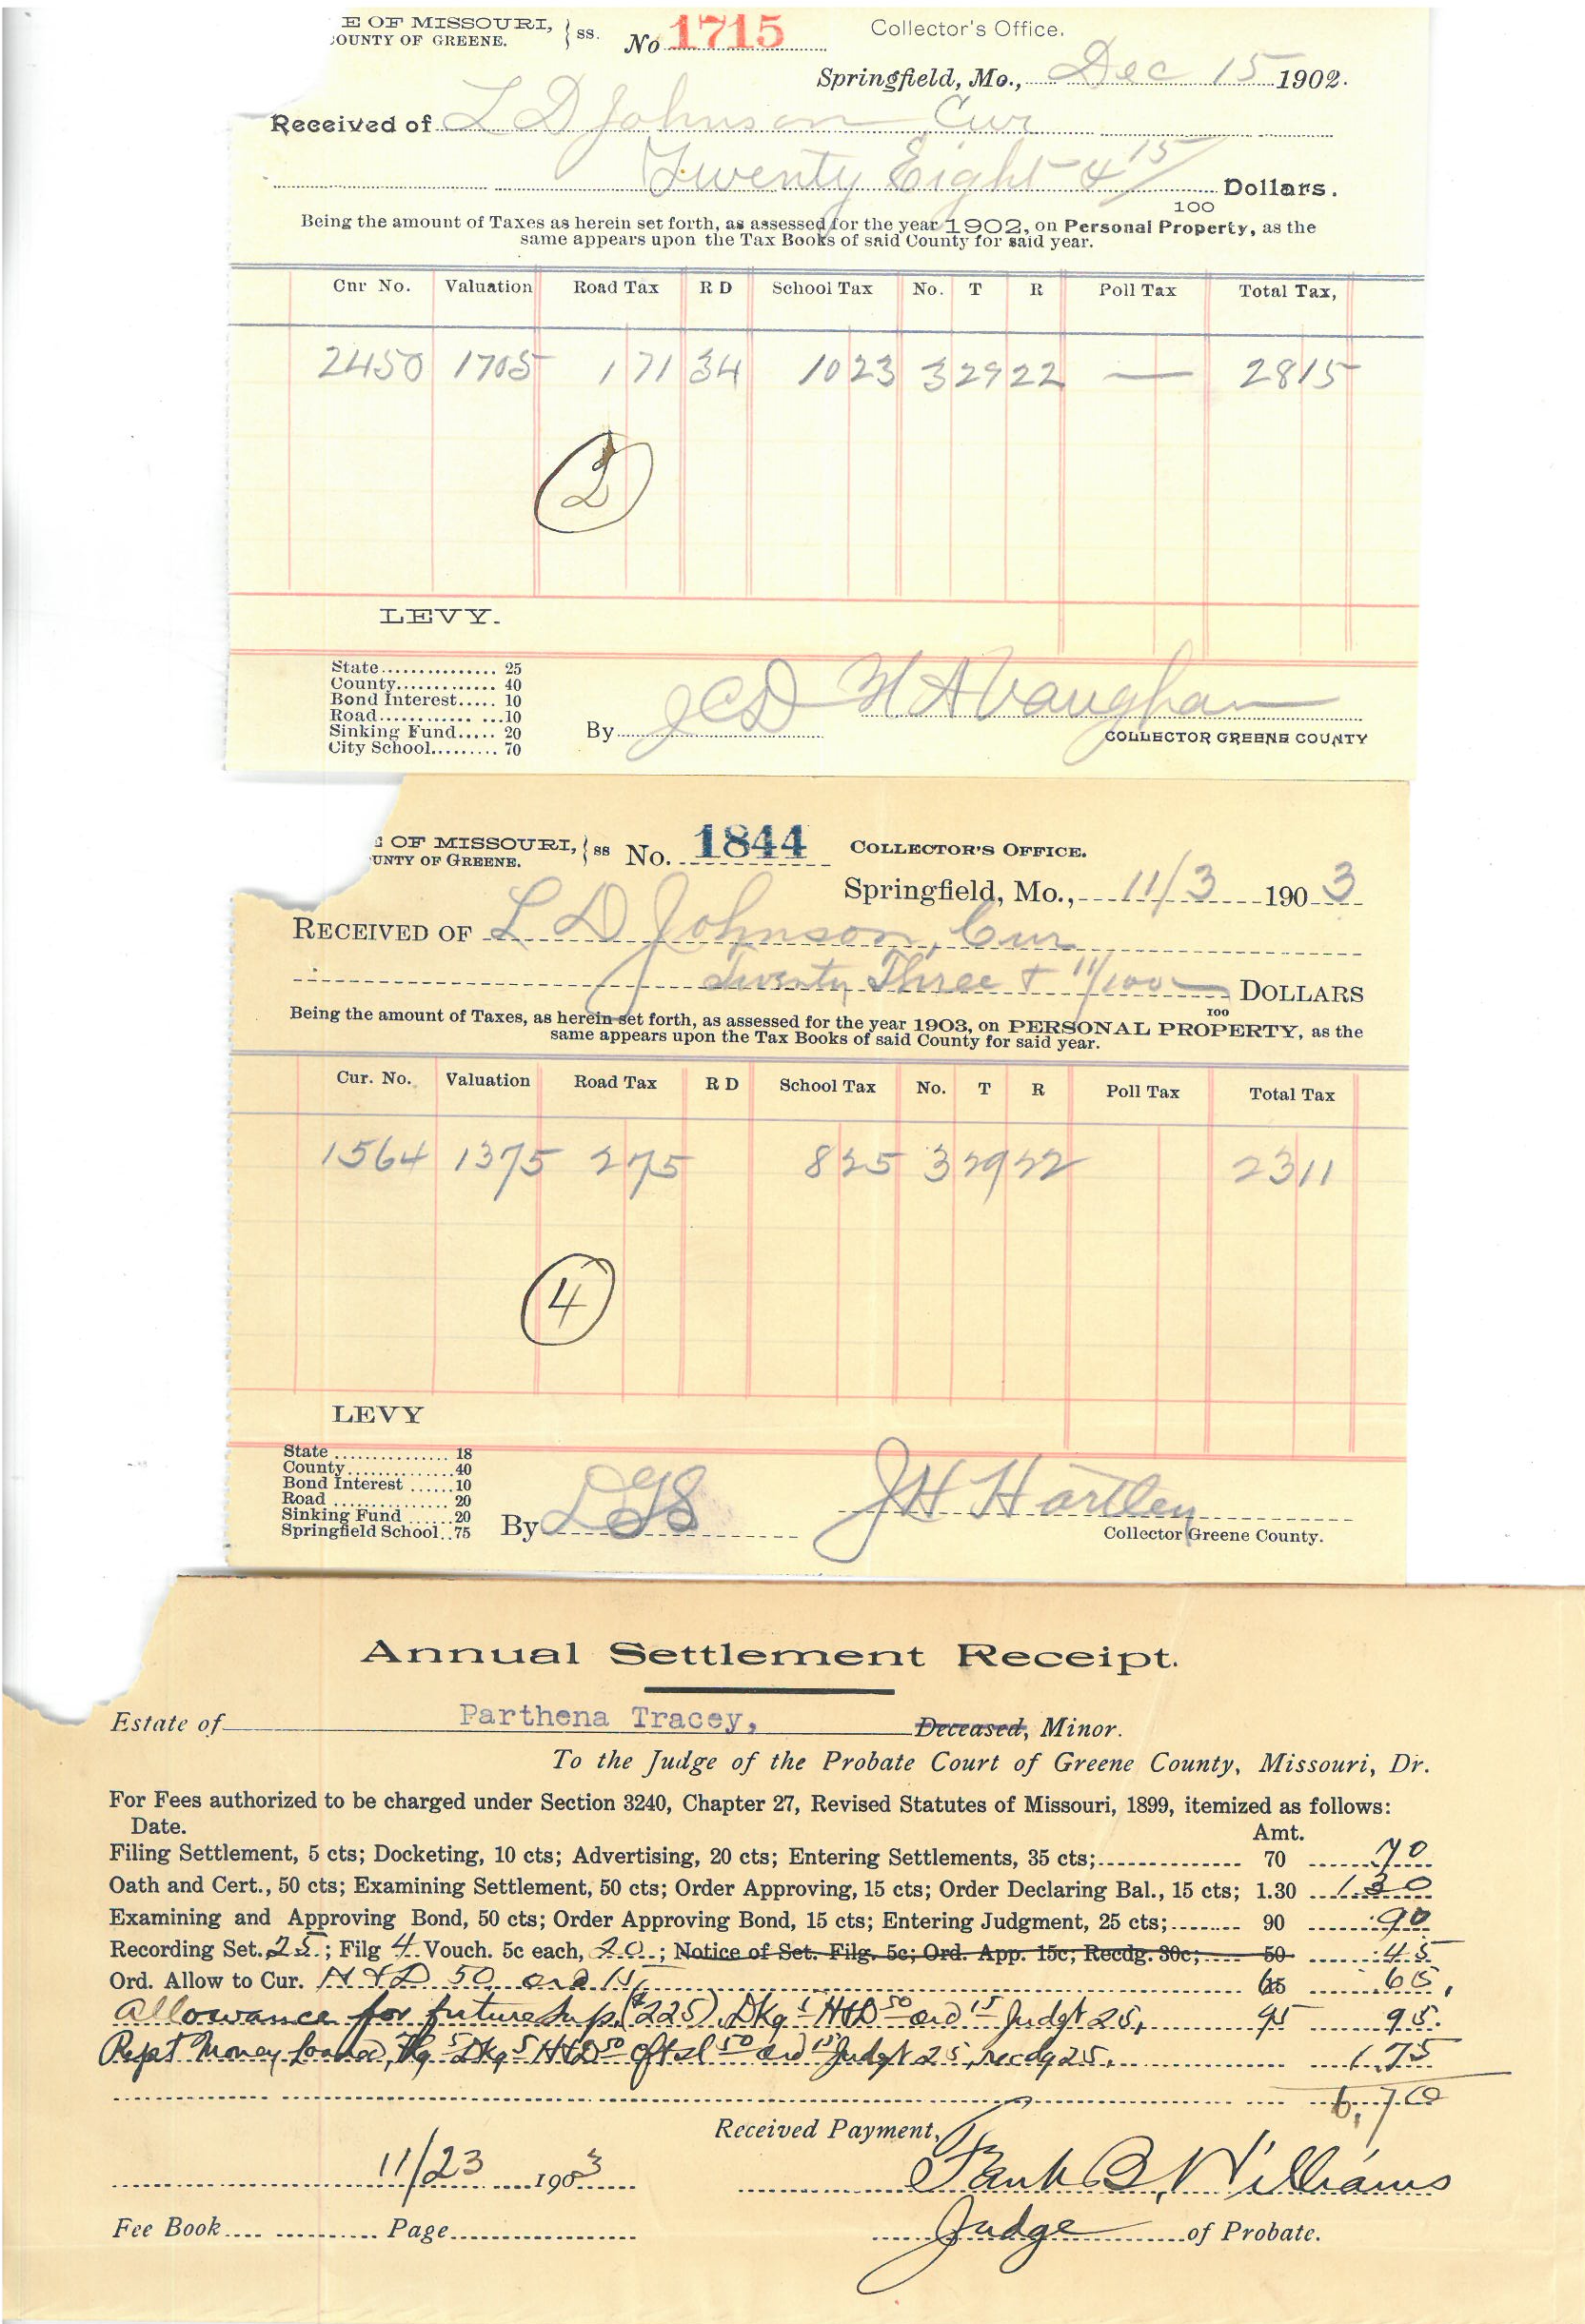 E OF MISSOURI, } ss. No 1715 Collector's Office.
OUNTY OF GREENE.
Springfield, Mo., Dec 15 1902.
Received of L D Johnson Cur
Twenty Eight & 15/100 Dollars.
Being the amount of Taxes as herein set forth, as assessed for the year 1902, on Personal Property, as the
same appears upon the Tax Books of said County for said year.
Cnr No. Valuation Road Tax R D School Tax No. T R Poll Tax Total Tax,
2450 1705 1 71 34 10 23 3 29 22 — 28 15
2
LEVY.
State............... 25
County............. 40
Bond Interest..... 10
Road............ ...10
Sinking Fund..... 20
City School......... 70
By J C D H A Vaughan
COLLECTOR GREENE COUNTY
E OF MISSOURI, } ss No. 1844 COLLECTOR'S OFFICE.
UNTY OF GREENE.
Springfield, Mo., 11/3 1903
RECEIVED OF L D Johnson, Cur
Twenty Three + 11/100 DOLLARS
100
Being the amount of Taxes, as herein set forth, as assessed for the year 1903, on PERSONAL PROPERTY, as the
same appears upon the Tax Books of said County for said year.
Cur. No. Valuation Road Tax R D School Tax No. T R Poll Tax Total Tax
1564 1375 2 75 8 25 3 29 22 23 11
4
LEVY
State ............... 18
County..............40
Bond Interest ......10
Road ............... 20
Sinking Fund ......20
Springfield School..75
By LGS J H Hartley
Collector Greene County.
Annual Settlement Receipt.
Estate of Parthena Tracey, Deceased, Minor.
To the Judge of the Probate Court of Greene County, Missouri, Dr.
For Fees authorized to be charged under Section 3240, Chapter 27, Revised Statutes of Missouri, 1899, itemized as follows:
Date. Amt.
Filing Settlement, 5 cts; Docketing, 10 cts; Advertising, 20 cts; Entering Settlements, 35 cts; 70 70
Oath and Cert., 50 cts; Examining Settlement, 50 cts; Order Approving, 15 cts; Order Declaring Bal., 15 cts; 1.30 1.30
Examining and Approving Bond, 50 cts; Order Approving Bond, 15 cts; Entering Judgment, 25 cts; 90 90
Recording Set. 25; Filg 4 Vouch. 5c each, 20; Notice of Set. Filg. 5c; Ord. App. 15c; Recdg. 30c; 50 .45
Ord. Allow to Cur. H & D 50 ord 15 65 65,
Allowance for future sup. ($225), Dkg 5 H&D 50 ord 15 Judgt 25, 95 95.
Rept Money loaned, Dkg 5 H&D 50 50 ord 15 Judgt 25, recdg 25. 1.75
6.70
Received Payment,
11/23 1903 Frank B. Williams
Fee Book.... .......... Page................... Judge of Probate.